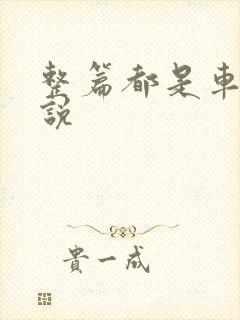 整篇都是車
說
貴一成